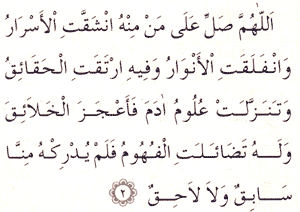 اَللّٰهُمَّ صَلِّ عَلَى مَنْ مِنْهُ انْشَقَّتِ الْأَسْرَارُ
وَانْفَلَقَتِ الْأَنْوَارُ وَفِيهِ ارْتَقَتِ الْحَقَائِقُ
وَتَنَزَّلَتْ عُلُومُ اٰدَمَ فَأَعْجَزَ الْخَلَائِقَ
وَلَهُ تَضَائَلَتِ الْفُهُومُ فَلَمْ يُدْرِكْهُ مِنَّا
سَابِقٌ وَلَا لَاحِقٌ ٢